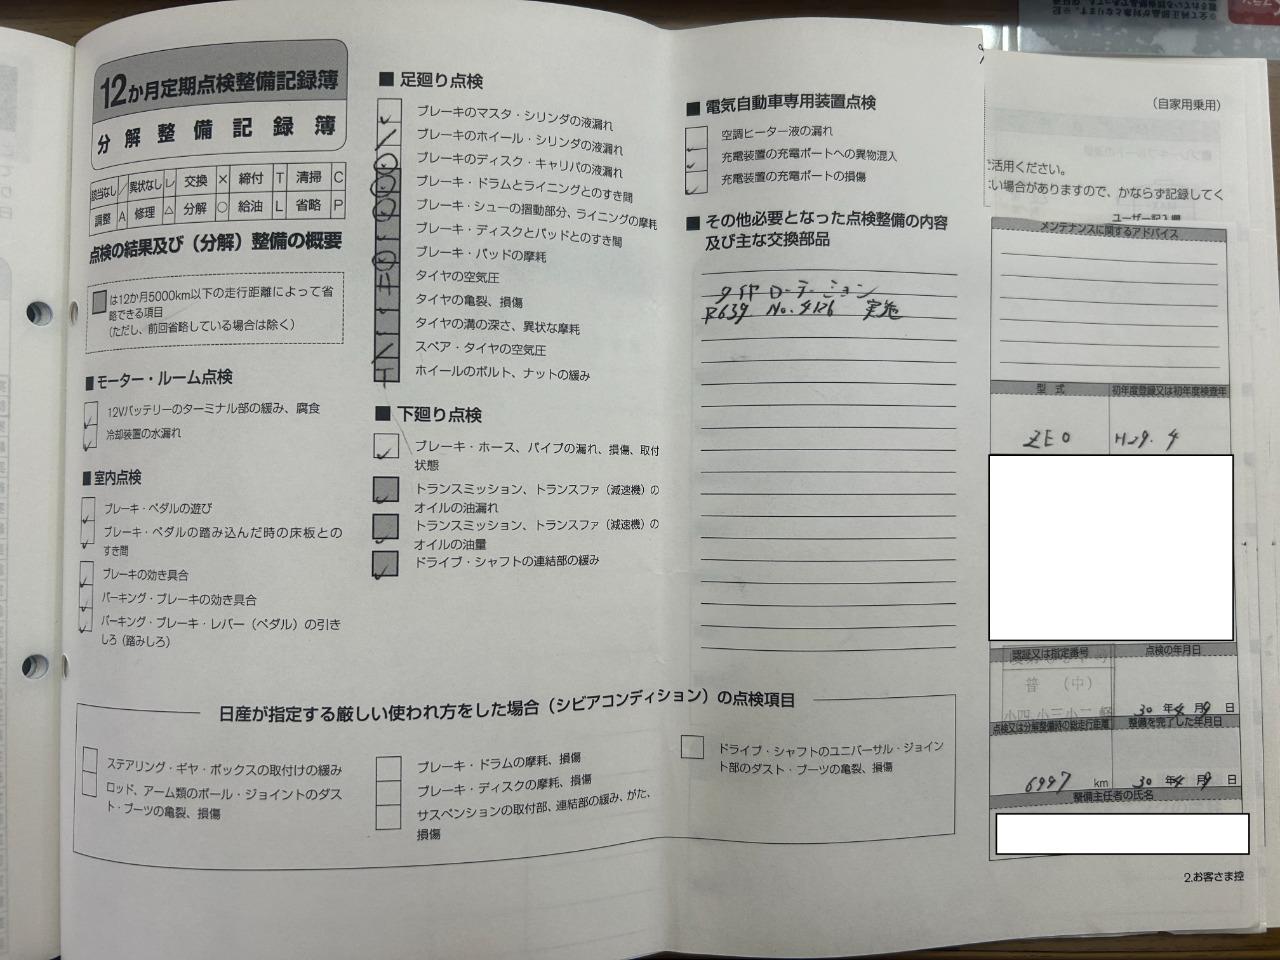 12か月定期点検整備記録簿
分解整備記録簿
該当なし / 異状なし レ 交換 × 締付 T 清掃 C
調整 A 修理 △ 分解 ○ 給油 L 省略 P
点検の結果及び（分解）整備の概要
は12か月5000km以下の走行距離によって省
略できる項目
（ただし、前回省略している場合は除く）
■モーター・ルーム点検
12Vバッテリーのターミナル部の緩み、腐食
冷却装置の水漏れ
■室内点検
ブレーキ・ペダルの遊び
ブレーキ・ペダルの踏み込んだ時の床板との
すき間
ブレーキの効き具合
パーキング・ブレーキの効き具合
パーキング・ブレーキ・レバー（ペダル）の引き
しろ（踏みしろ）
■足廻り点検
ブレーキのマスタ・シリンダの液漏れ
ブレーキのホイール・シリンダの液漏れ
ブレーキのディスク・キャリパの液漏れ
ブレーキ・ドラムとライニングとのすき間
ブレーキ・シューの摺動部分、ライニングの摩耗
ブレーキ・ディスクとパッドとのすき間
ブレーキ・パッドの摩耗
タイヤの空気圧
タイヤの亀裂、損傷
タイヤの溝の深さ、異状な摩耗
スペア・タイヤの空気圧
ホイールのボルト、ナットの緩み
■下廻り点検
ブレーキ・ホース、パイプの漏れ、損傷、取付
状態
トランスミッション、トランスファ（減速機）の
オイルの油漏れ
トランスミッション、トランスファ（減速機）の
オイルの油量
ドライブ・シャフトの連結部の緩み
■電気自動車専用装置点検
空調ヒーター液の漏れ
充電装置の充電ポートへの異物混入
充電装置の充電ポートの損傷
■その他必要となった点検整備の内容
及び主な交換部品
タイヤローテーション
P639 No.4126 実施
（自家用乗用）
ご活用ください。
い場合がありますので、かならず記録してく
ユーザー記入欄
メンテナンスに関するアドバイス
型式 初年度登録又は初年度検査年
ZE0 H29.4
認証又は指定番号 点検の年月日
普（中）
小四 小三 小二 軽
30年4月9日
点検又は分解整備時の総走行距離 整備を完了した年月日
6997 km 30年4月9日
整備主任者の氏名
2.お客さま控
日産が指定する厳しい使われ方をした場合（シビアコンディション）の点検項目
ステアリング・ギヤ・ボックスの取付けの緩み
ロッド、アーム類のボール・ジョイントのダス
ト・ブーツの亀裂、損傷
ブレーキ・ドラムの摩耗、損傷
ブレーキ・ディスクの摩耗、損傷
サスペンションの取付部、連結部の緩み、がた、
損傷
ドライブ・シャフトのユニバーサル・ジョイン
ト部のダスト・ブーツの亀裂、損傷